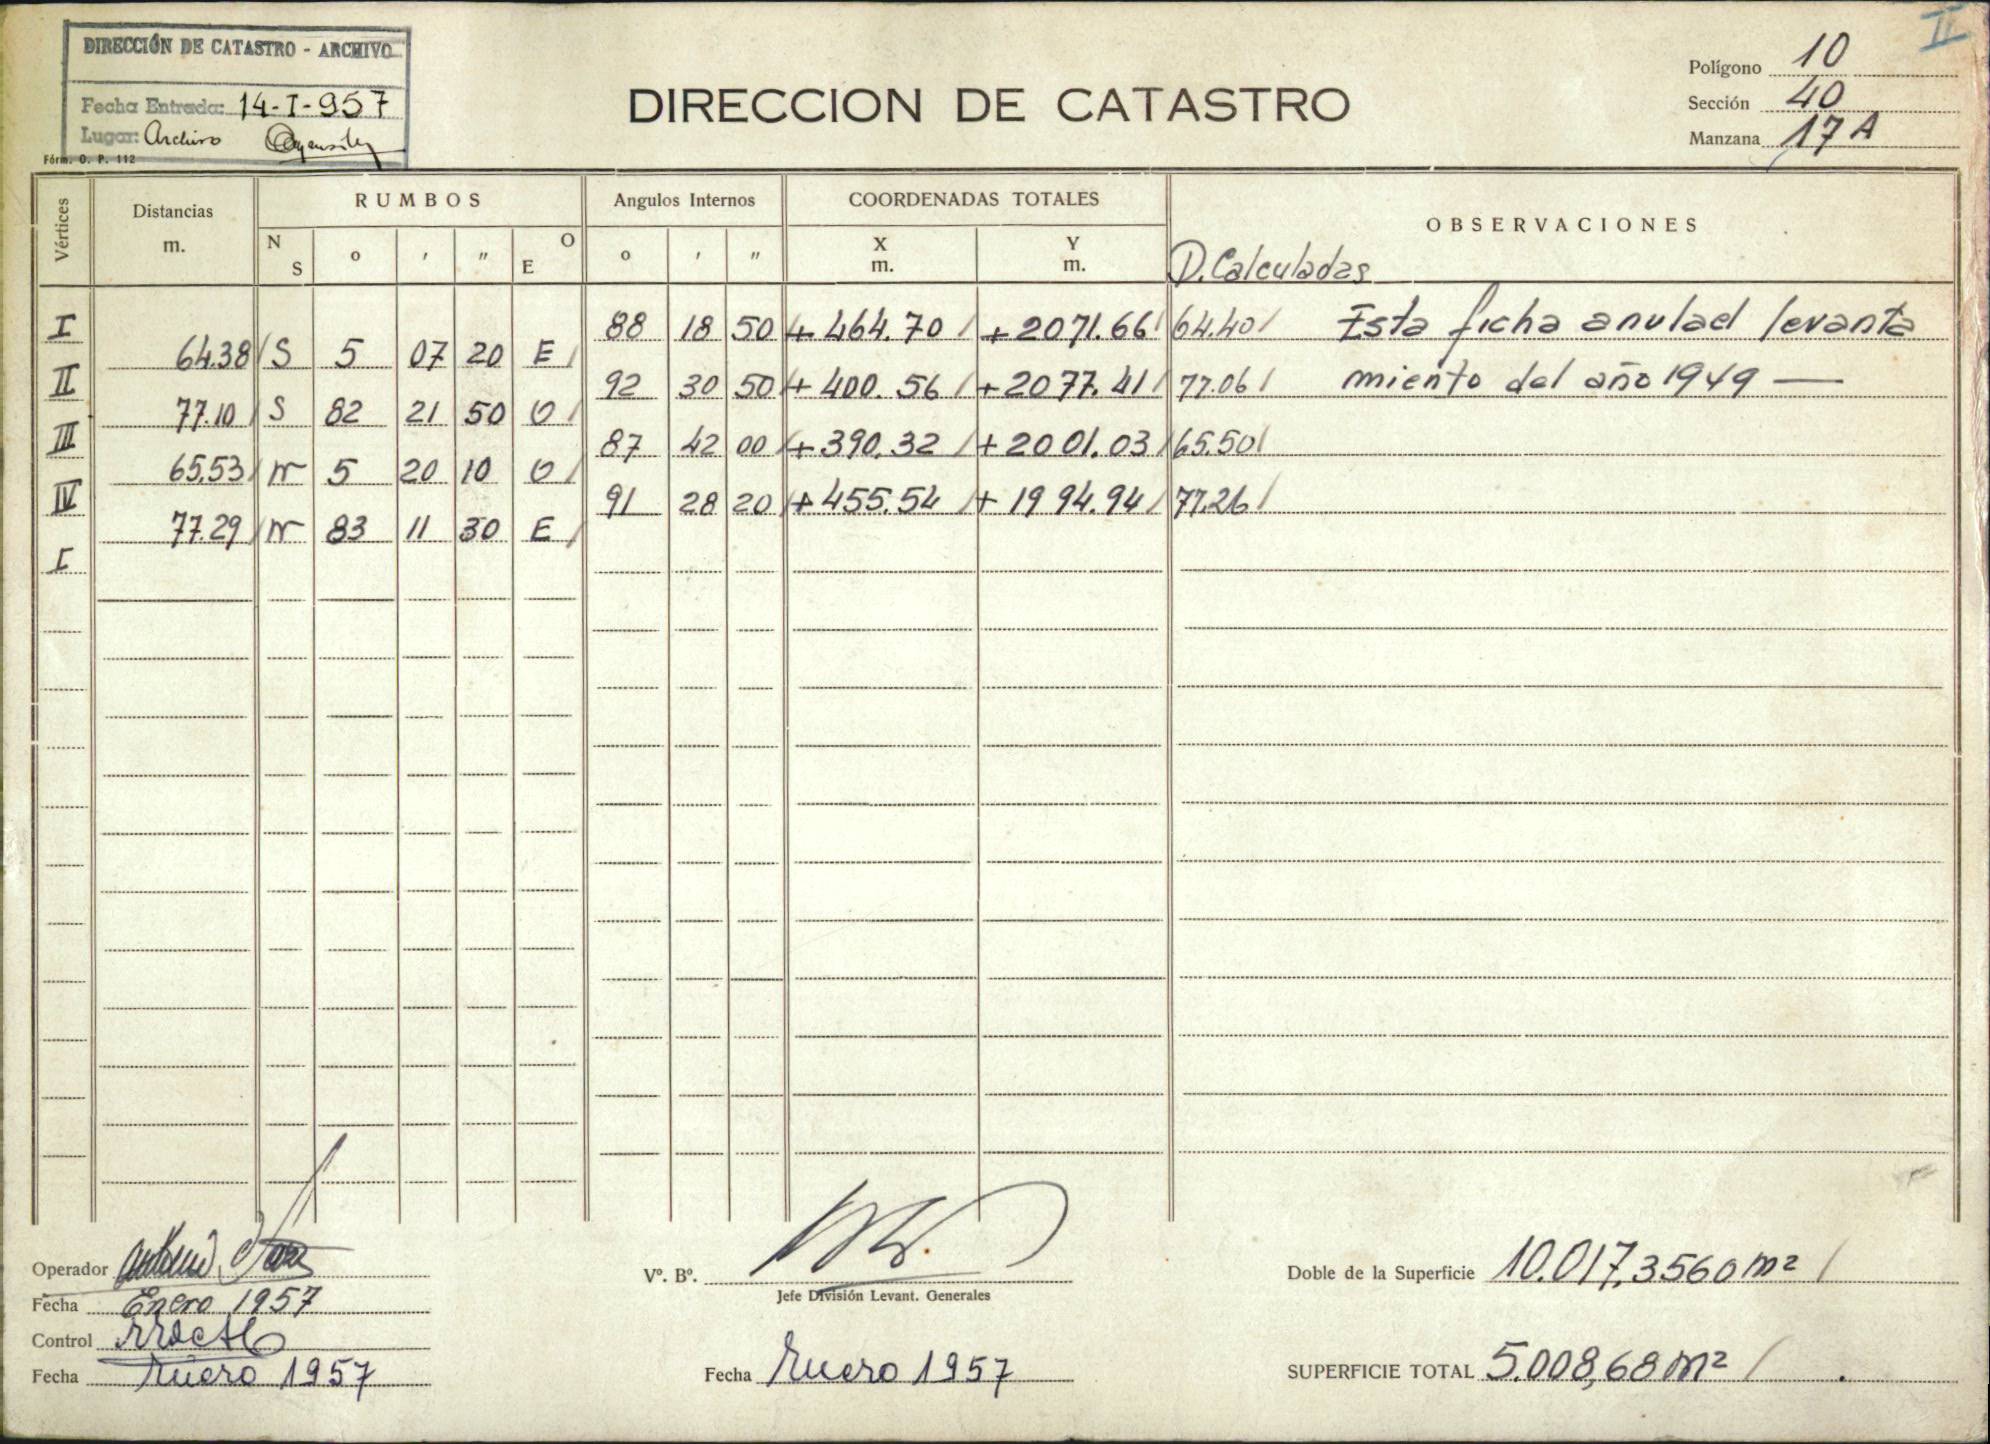 II
DIRECCIÓN DE CATASTRO - ARCHIVO
Fecha Entrada: 14-I-957
Lugar: Archivo
Fórm. O. P. 112
DIRECCION DE CATASTRO
Polígono 10
Sección 40
Manzana 17 A
Vértices Distancias m. RUMBOS Angulos Internos COORDENADAS TOTALES OBSERVACIONES
N S o ' " O E o ' " X m. Y m. D. Calculadas
I 88 18 50 + 464.70 + 2071.66 64.40 Esta ficha anula el levanta
64.38 S 5 07 20 E
II 92 30 50 + 400.56 + 2077.41 77.06 miento del año 1949 —
77.10 S 82 21 50 O
III 87 42 00 + 390.32 + 2001.03 65.50
65.53 N 5 20 10 O
IV 91 28 20 + 455.54 + 1994.94 77.26
77.29 N 83 11 30 E
I
Operador Antonio
Fecha Enero 1957
Control
Fecha Enero 1957
Vº. Bº.
Jefe División Levant. Generales
Fecha Enero 1957
Doble de la Superficie 10.017,3560 m²
SUPERFICIE TOTAL 5.008,68 m²